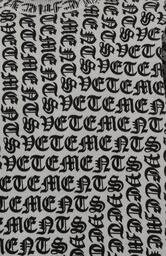 VETEMENTS
VETEMENTS
VETEMENTS
VETEMENTS
VETEMENTS
VETEMENTS
VETEMENTS
VETEMENTS
VETEMENTS